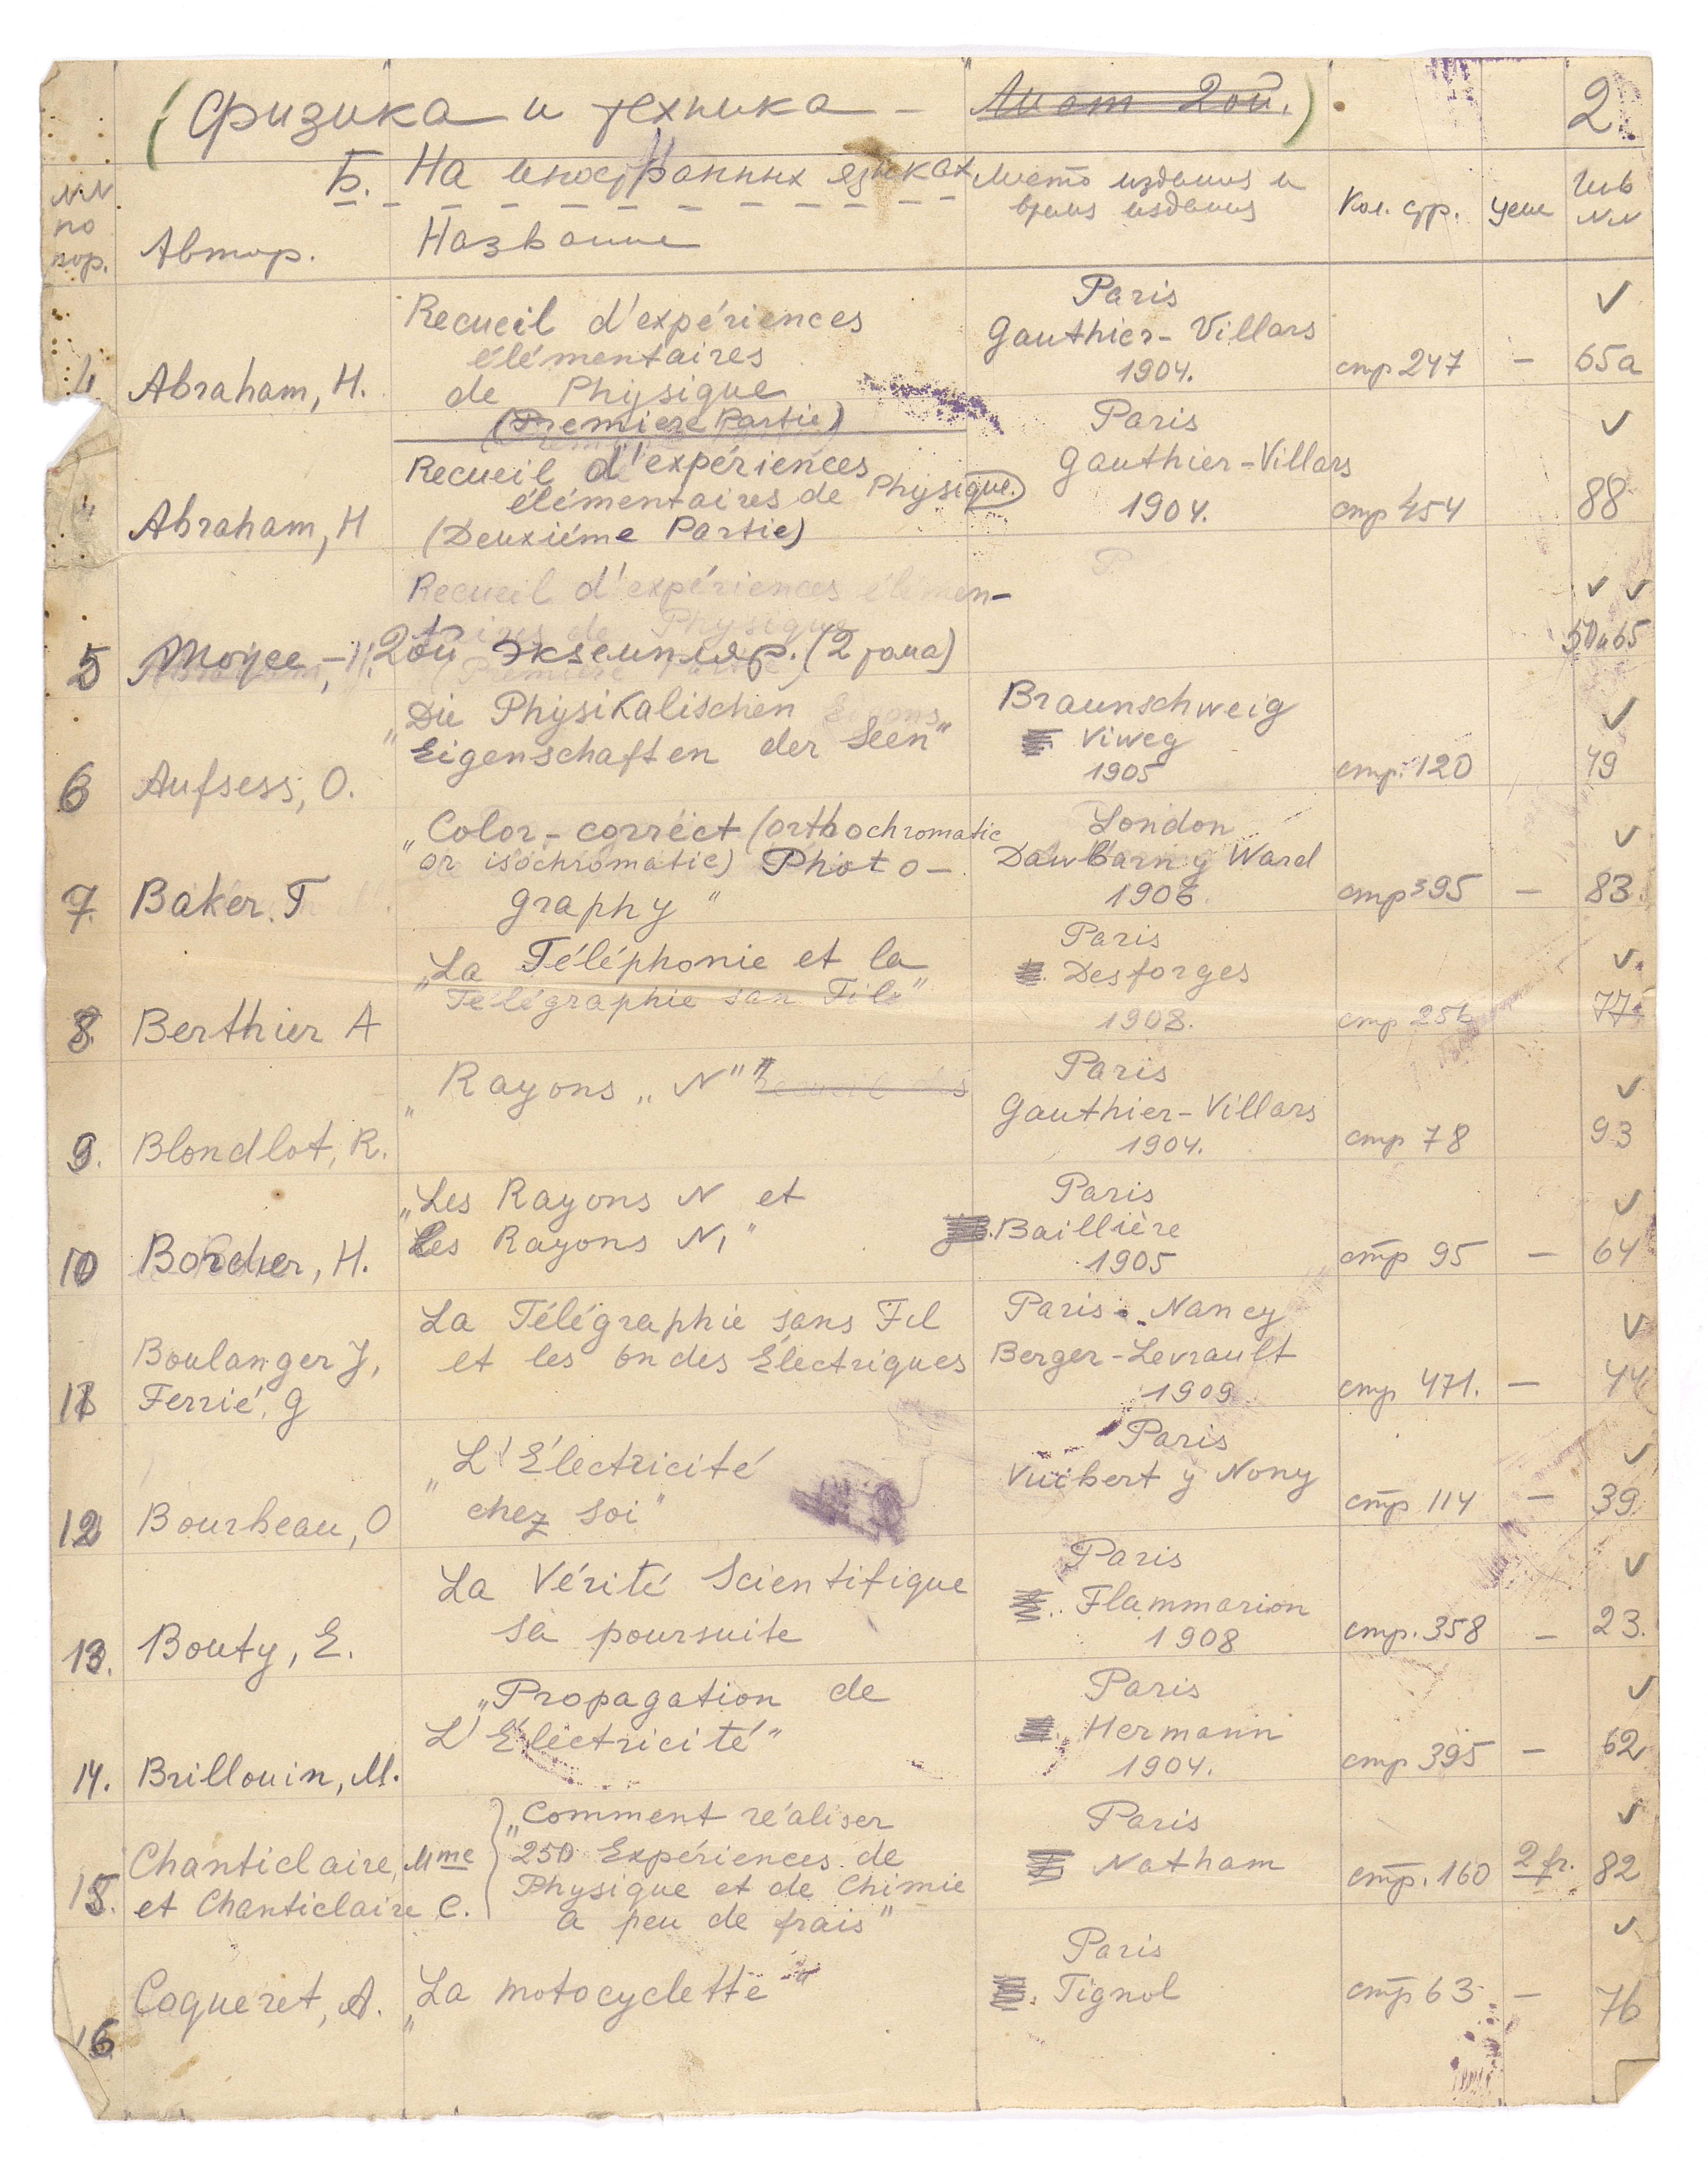 (Физика и техника — Лист 2ой.) 2.
Б. На иностранных языках
NN по пор. Автор. Название Место издания и время издания Кол. стр. Цена Инв NN
4 Abraham, H. Recueil d'expériences
élémentaires
de Physique
(Premiere Partie)
Paris
Gauthier-Villars
1904. стр 247 — 65a
" Abraham, H Recueil d'expériences
élémentaires de Physique.
(Deuxiéme Partie)
Paris
Gauthier-Villars
1904. стр 454 88
Recueil d'expériences élémen-
5 Тоже — 2ой экземпляр. (2 тома)
6 Aufsess, O. „Die Physikalischen
Eigenschaften der Seen"
Braunschweig
Viweg
1905 стр. 120 49
7. Baker. T „Color-correct (orthochromatic
or isochromatic) Photo-
graphy"
London
Dawbarn y Ward
1906. стр 395 — 83.
8. Berthier A „La Téléphonie et la
Télégraphie san Fils"
Paris
Desforges
1908. стр 77
9. Blondlot, R. „Rayons „N"" Recueil des
Paris
Gauthier-Villars
1904. стр 78 93
10 Bordier, H. „Les Rayons N et
Les Rayons N₁"
Paris
Baillière
1905 стр 95 — 64
11 Boulanger J,
Ferrié, G
La Télégraphie sans Fil
et les Ondes Électriques
Paris. Nancy
Berger-Levrault
1909 стр 471. — 44
12 Bourbeau, O „L'Électricité
chez soi"
Paris
Vuibert y Nony
стр 114 — 39.
13. Bouty, E. La Vérité Scientifique
sa poursuite
Paris
Flammarion
1908 стр. 358 — 23.
14. Brillouin, M. „Propagation de
L'Électricité"
Paris
Hermann
1904. стр 395 — 62
15. Chanticlaire, Mme
et Chanticlaire C.
„Comment réaliser
250 Expériences de
Physique et de Chimie
a peu de frais"
Paris
Natham
стр. 160 2 fr. 82
16 Coqueret, A. „La motocyclette"
Paris
Tignol
стр 63 — 76